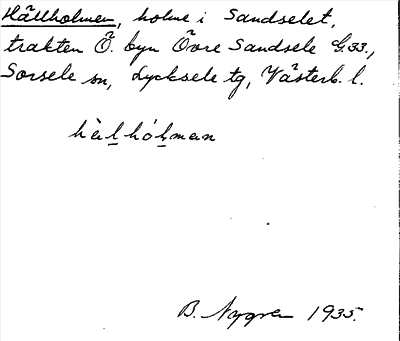 Hällholmen, holme i Sandselet,
trakten Ö. byn Övre Sandsele G.33.,
Sorsele sn, Lycksele tg, Västerb. l.
hä̀lhólman
B. Nygren 1935.